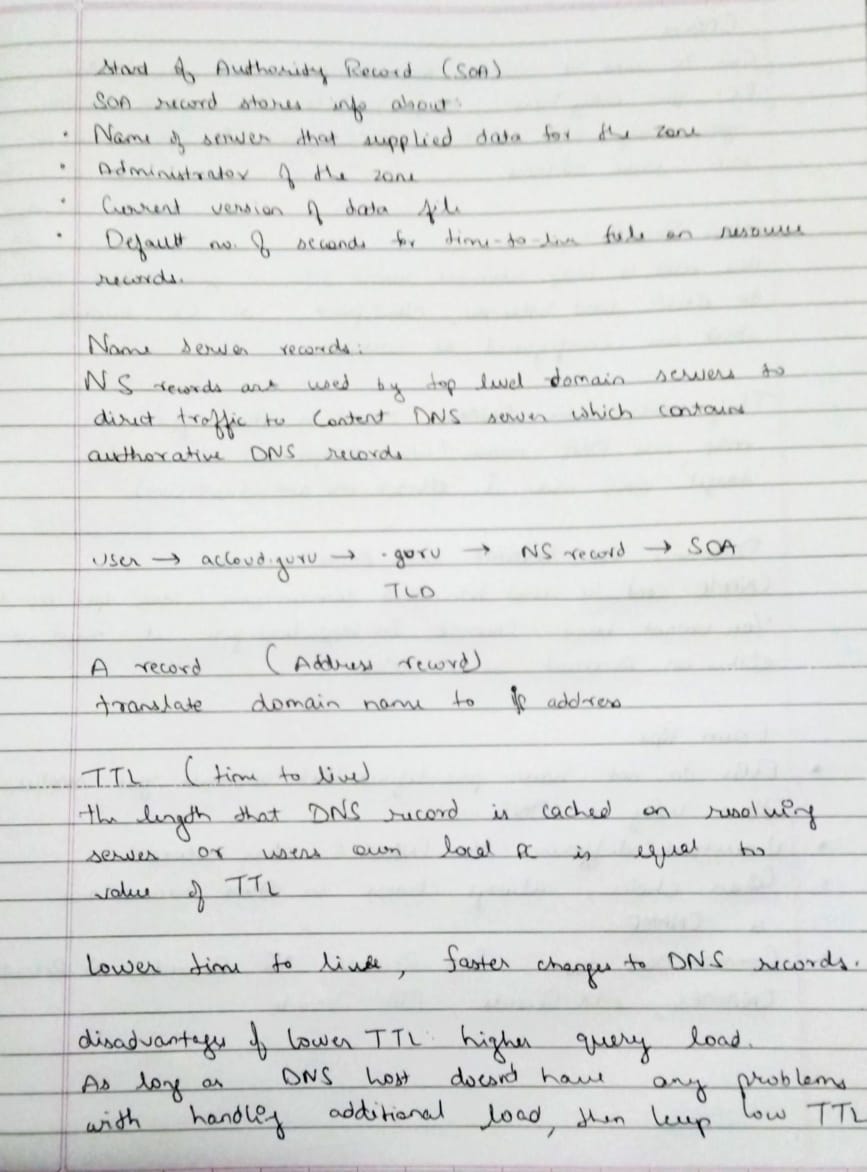 Start of Authority Record (SOA)
SOA record stores info about:
• Name of server that supplied data for the zone
• Administrator of the zone
• Current version of data file
• Default no. of seconds for time-to-live file on resource
records.
Name server records:
NS records are used by top level domain servers to
direct traffic to Content DNS server which contains
authorative DNS records
User → acloud.guru → .guru → NS record → SOA
TLD
A record (Address record)
translate domain name to ip address
TTL (time to live)
the length that DNS record is cached on resolving
server or users own local PC is equal to
value of TTL
Lower time to live, faster changes to DNS records.
disadvantages of lower TTL: higher query load.
As long as DNS host doesn't have any problems
with handling additional load, then keep low TTL